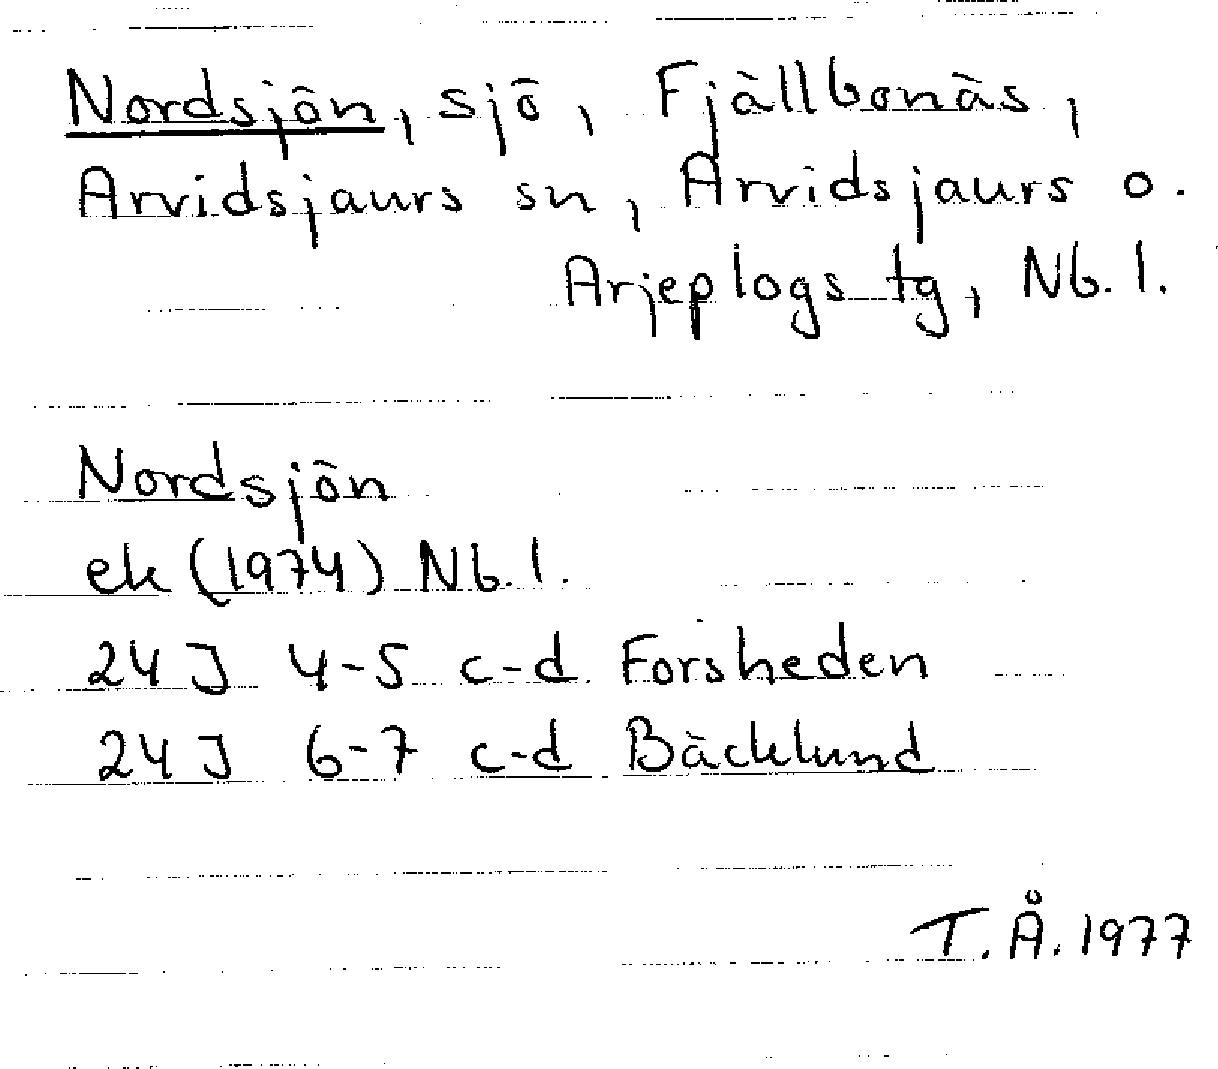 Nordsjön, sjö, Fjällbonäs,
Arvidsjaurs sn, Arvidsjaurs o.
Arjeplogs tg, Nb. l.
Nordsjön
ek (1974) Nb. l.
24 J 4-5 c-d Forsheden
24 J 6-7 c-d Bäcklund
T. Å. 1977